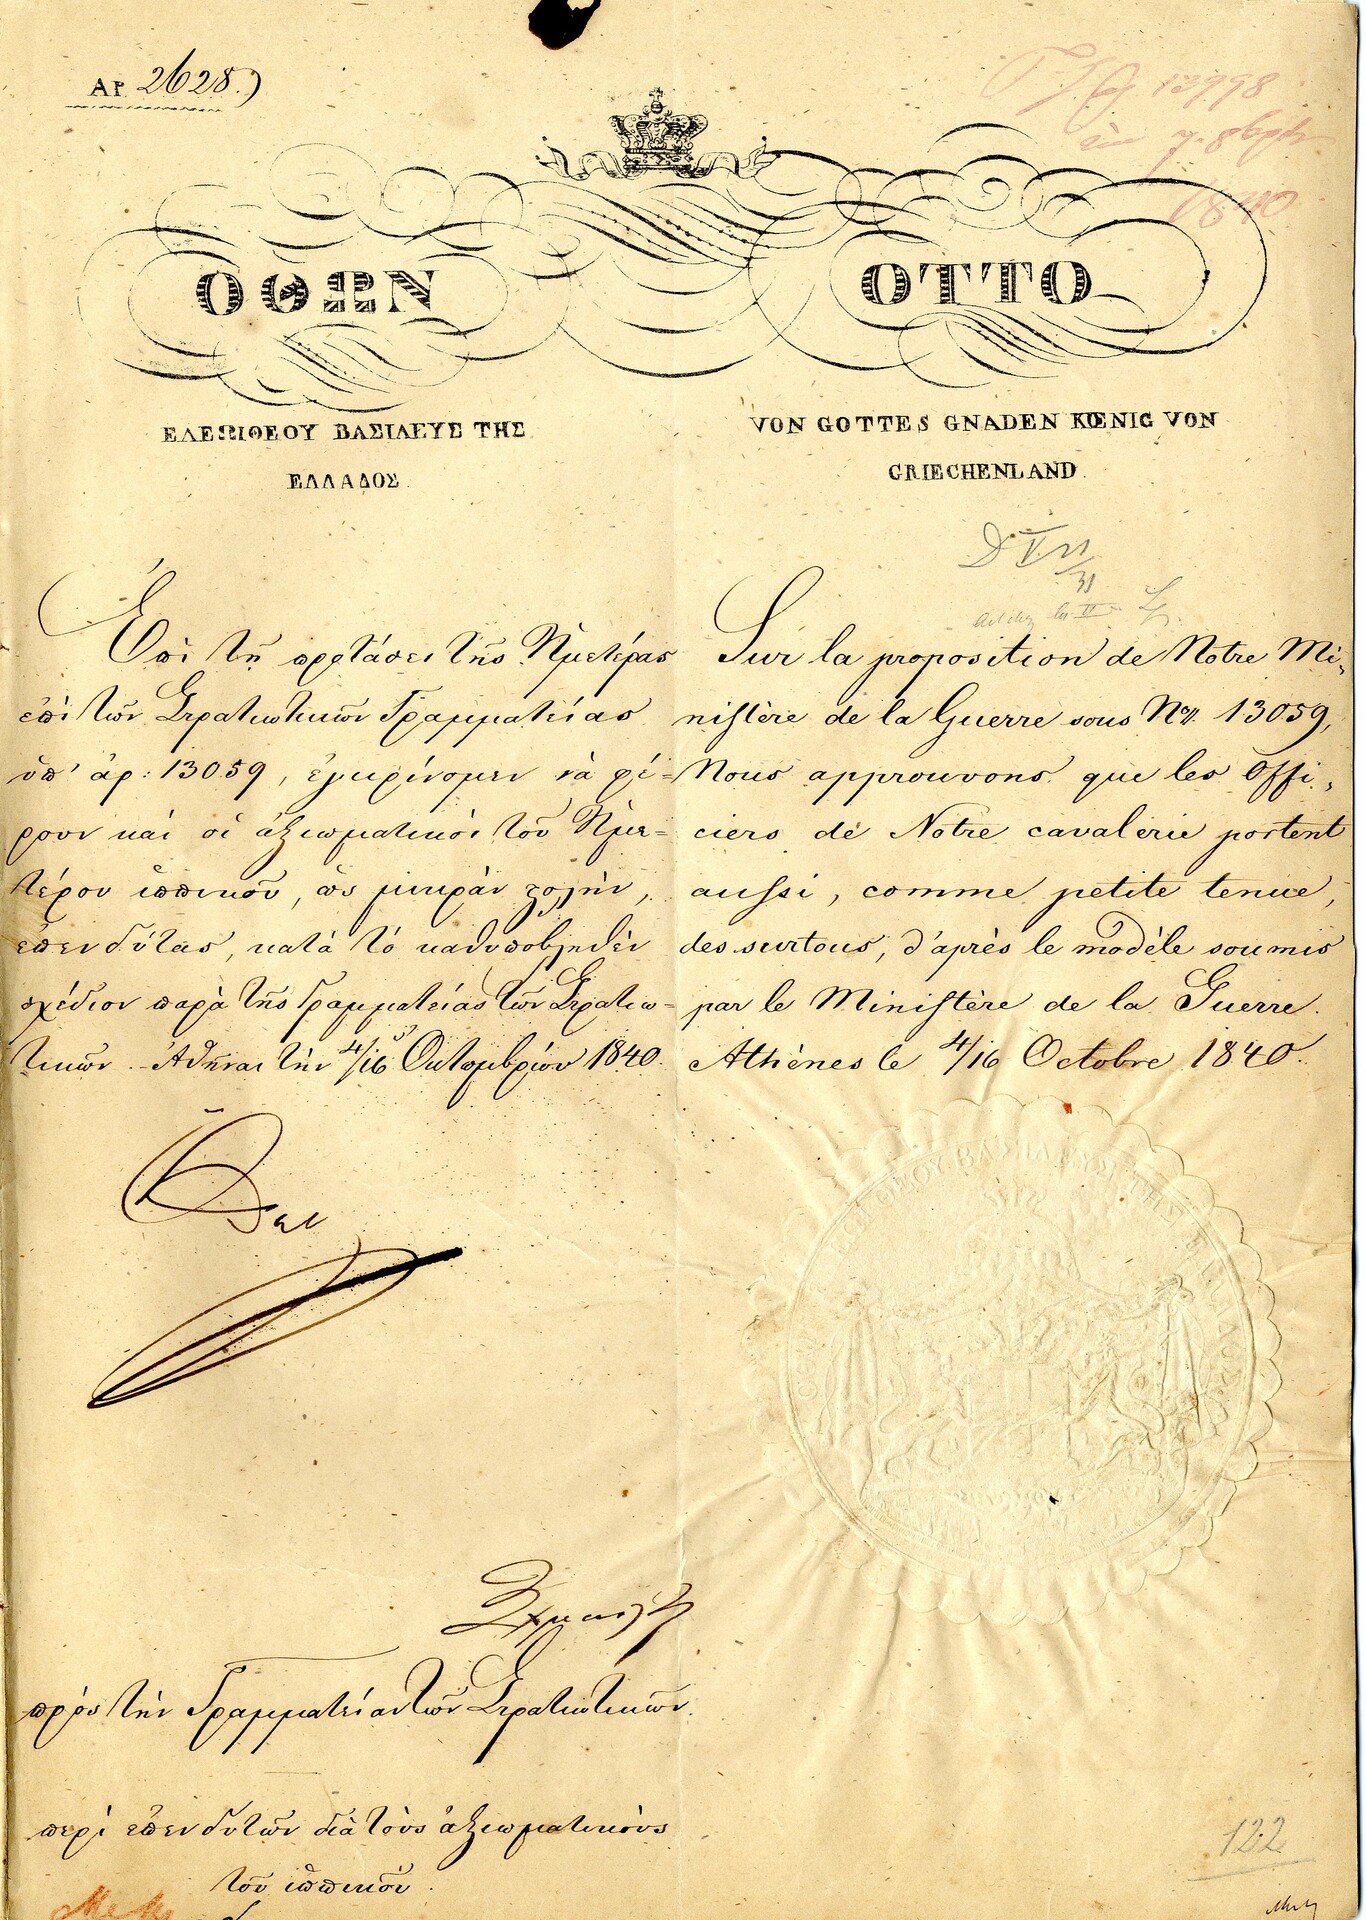 ΑΡ. 2628.
ΟΘΩΝ
ΕΛΕΩι ΘΕΟΥ ΒΑΣΙΛΕΥΣ ΤΗΣ
ΕΛΛΑΔΟΣ
Ἐπὶ τῇ προτάσει τῆς Ἡμετέρας
ἐπὶ τῶν Στρατιωτικῶν Γραμματείας
ὑπ' ἀρ: 13059, ἐγκρίνομεν νὰ φέ=
ρουν καὶ οἱ ἀξιωματικοὶ τοῦ Ἡμε=
τέρου ἱππικοῦ, ὡς μικρὰν στολὴν,
ἐπενδύτας, κατὰ τὸ καθυποβληθὲν
σχέδιον παρὰ τῆς Γραμματείας τῶν Στρατιω=
τικῶν. Ἀθῆναι τὴν 4/16 Ὀκτωμβρίου 1840.
πρὸς τὴν Γραμματείαν τῶν Στρατιωτικῶν.
περὶ ἐπενδυτῶν διὰ τοὺς ἀξιωματικοὺς
τοῦ ἱππικοῦ.
13998
1840
OTTO
VON GOTTES GNADEN KŒNIG VON
GRIECHENLAND
Sur la proposition de Notre Mi=
nistère de la Guerre sous No. 13059,
Nous approuvons que les Offi=
ciers de Notre cavalerie portent
aussi, comme petite tenue,
des surtous, d'après le modèle soumis
par le Ministère de la Guerre.
Athènes le 4/16 Octobre 1840.
ΘΕΟΥ ΒΑΣΙΛΕΥΣ ΤΗΣ ΕΛΛΑΔΟΣ
122